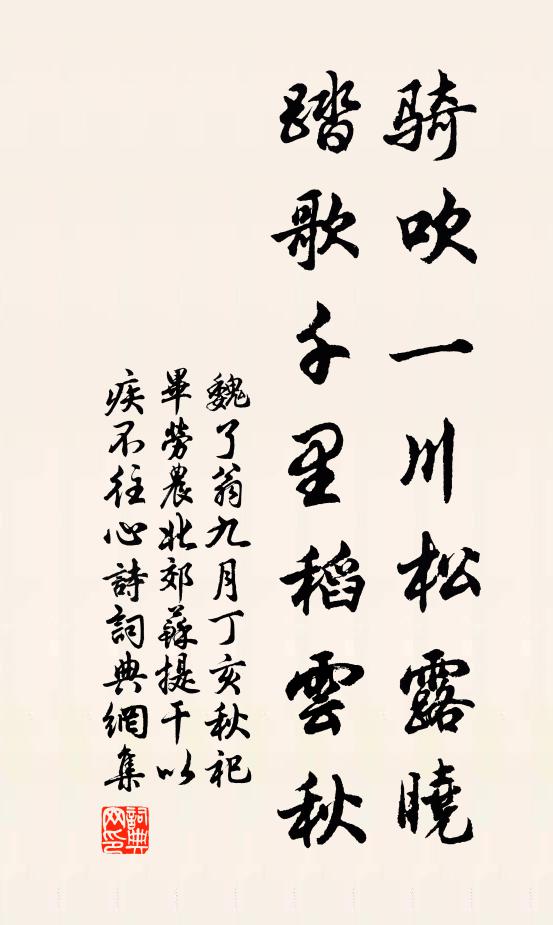 騎吹一川松露曉
踏歌千里稻雲秋
魏了翁九月丁亥秋祀
畢勞農北郊蘇提干以
疾不往心詩詞典網集
詞典网印